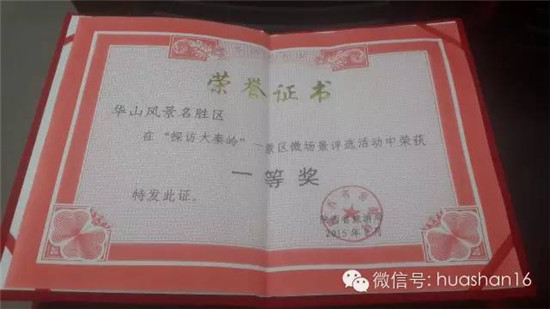 荣誉证书
华山风景名胜区
在“探访大秦岭”—景区微场景评选活动中荣获
一等奖
特发此证。
2015年 月
微信号: huashan16